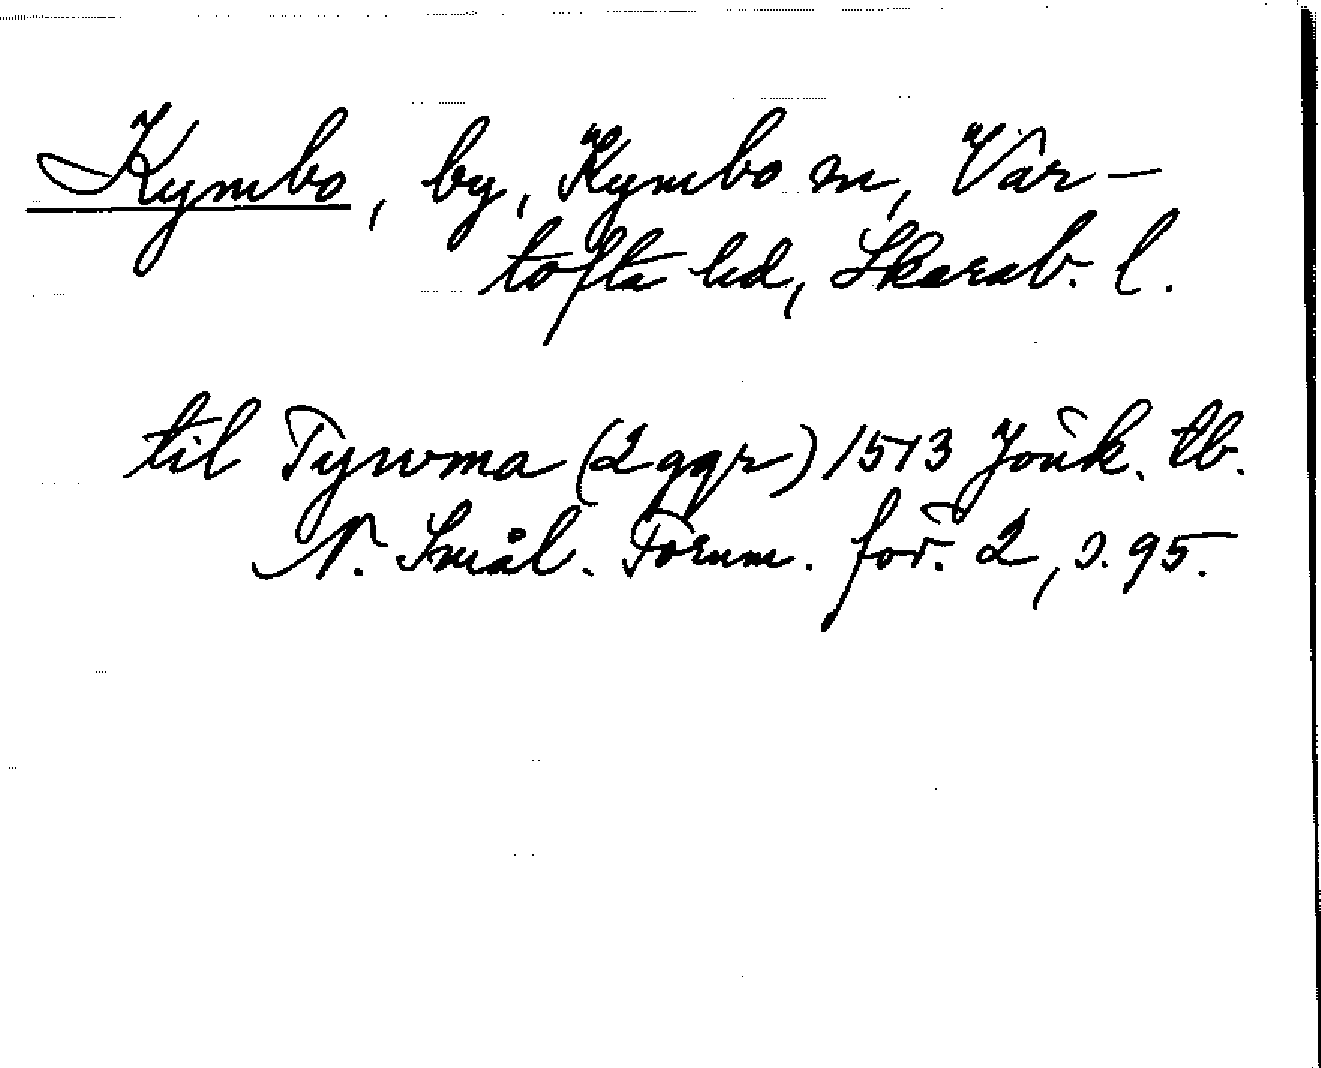 Kymbo, by, Kymbo sn, Var-
tofta hd, Skarab. l.
til Tyrvma (2 ggr) 1513 Jönk. tb.
N. Smål. Fornm. för. 2, s. 95.